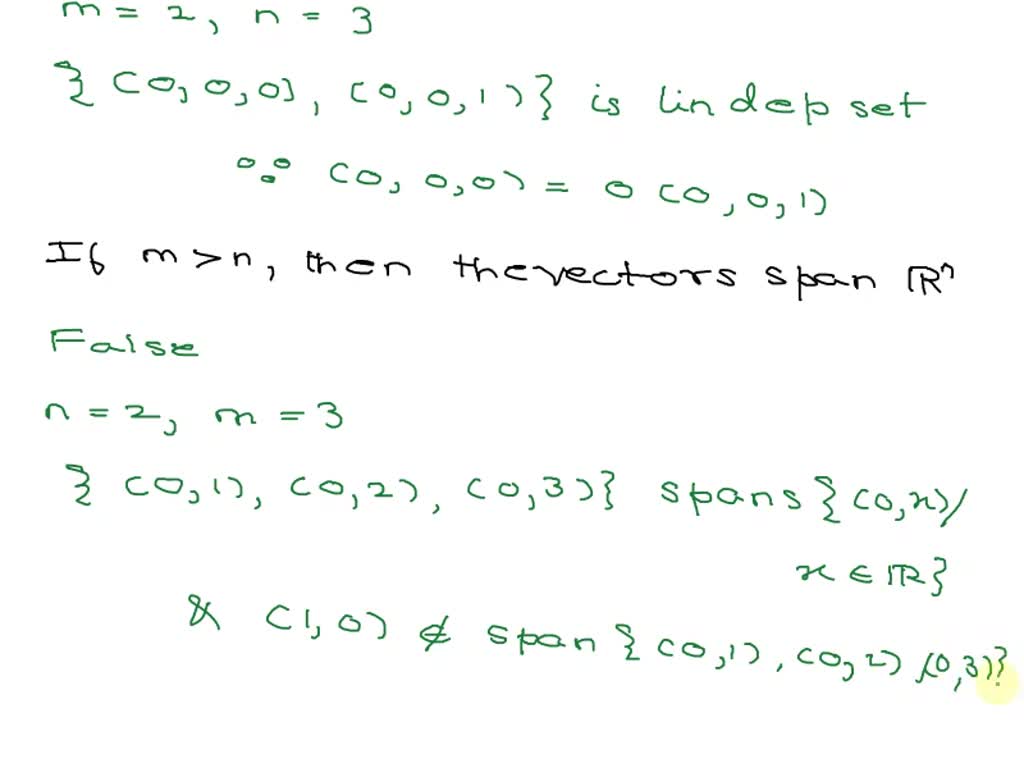 m = 2, n = 3
{ (0, 0, 0), (0, 0, 1) } is lin dep set
∵ (0, 0, 0) = 0 (0, 0, 1)
If m > n, then the vectors span ℝⁿ
False
n = 2, m = 3
{ (0, 1), (0, 2), (0, 3) } spans { (0, x) /
x ∈ ℝ }
& (1, 0) ∉ span { (0, 1), (0, 2) (0, 3) }